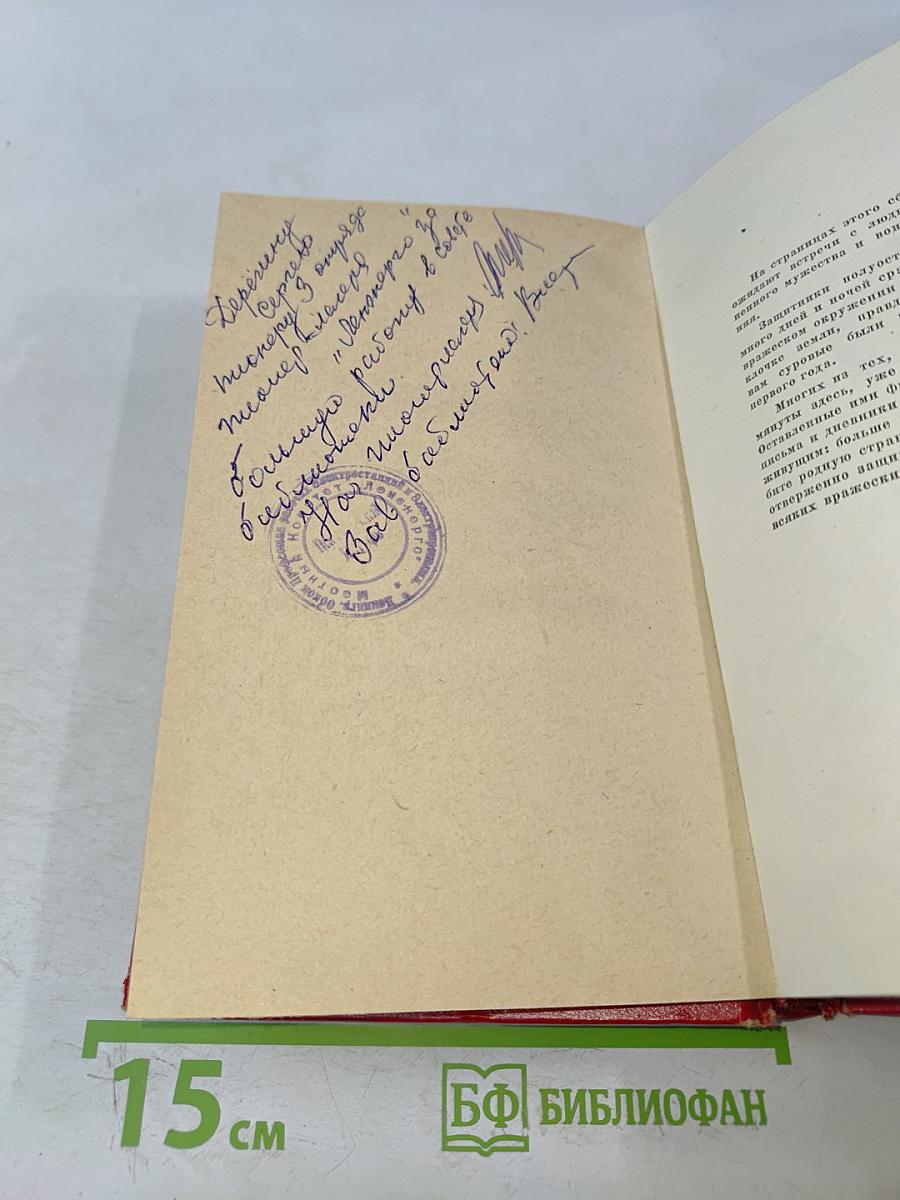 Дерягину
Сергею
пионеру 3 отряда
пионер. лагеря
"Ленэнерго" за
большую работу в совете
библиотеки.
Нач. пионерлагеря
Зав библиотекой:
Ленингр. Обком Профсоюза рабочих электростанций и электропромышл.
Местный Комитет "Ленэнерго"
На страницах этого сб
ожидают встречи с людь
ненного мужества и вои
ния.
Защитники полуост
много дней и ночей сра
вражеском окружении
клочке земли, правд
вам суровые были
первого года.
Многих из тех,
мянуты здесь, уже
Оставленные ими фр
письма и дневники
живущим: больше
бите родную стран
отверженно защи
всяких вражески
15 см
БФ БИБЛИОФАН